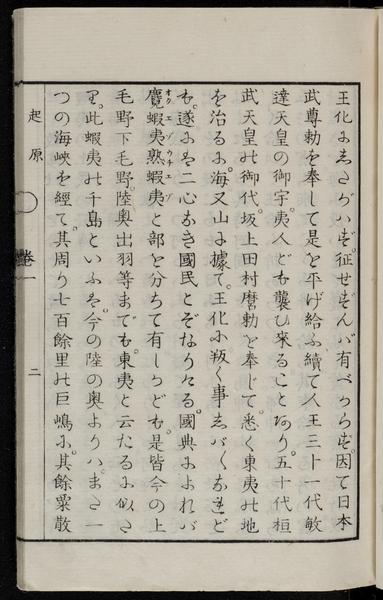 王化にしたがハず。征せずんバ有べからず。因て日本
武尊勅を奉して是を平げ給ふ。續て人王三十一代敏
達天皇の御宇。夷人ども襲ひ來ること有り。五十代桓
武天皇の御代。坂上田村麿勅を奉じて。悉く東夷の地
を治るに。海又山に據て。王化に叛く事しバ〳〵なれど
も。遂には二心なき國民とぞなりける。國典によれバ
麁蝦夷熟蝦夷と部を分ちて有しかども。是皆今の上
オクエゾウチエゾ
毛野下毛野。陸奧出羽等までも。東夷と云たるに似た
り。此蝦夷の千島といふは。今の陸の奥よりハ。まさ一
つの海峽を經て。其周り七百餘里の巨嶋に。其餘粟散
起原
卷一
二